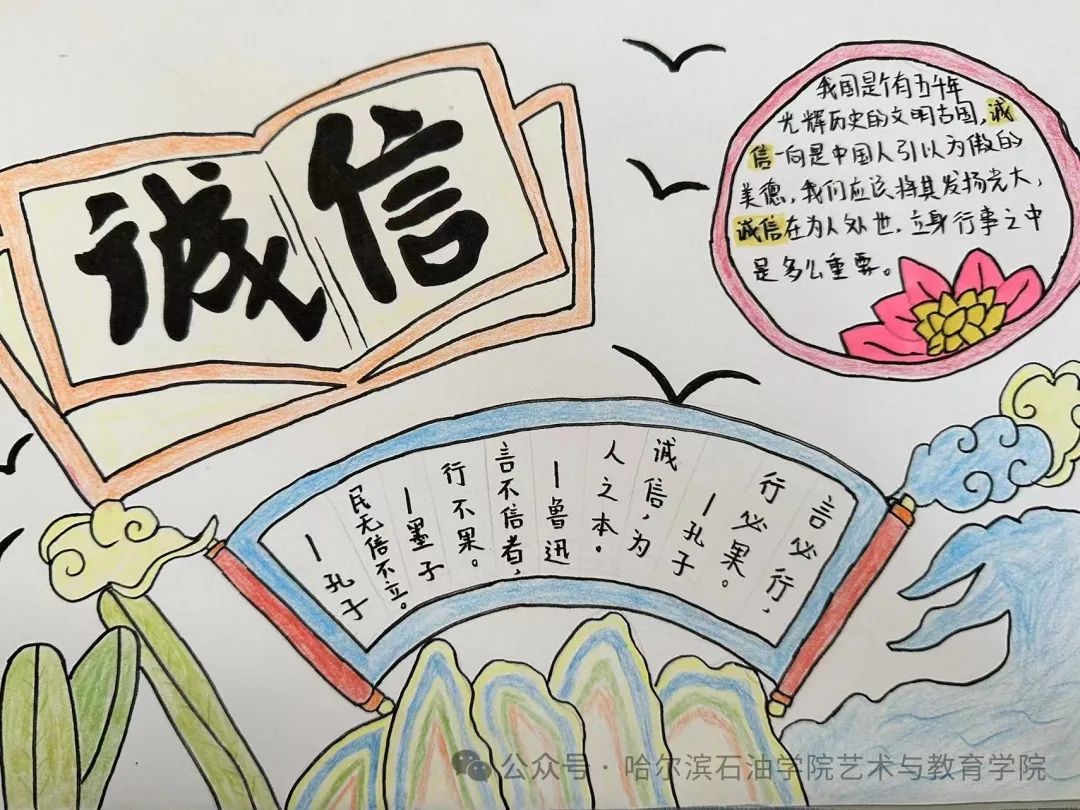 诚信
我国是个有五千年
光辉历史的文明古国,诚
信一向是中国人引以为傲的
美德,我们应该将其发扬光大,
诚信在为人处世,立身行事之中
是多么重要。
言必行,
行必果。
—孔子
诚信,为
人之本.
—鲁迅
言不信者,
行不果。
—墨子
民无信不立。
—孔子
公众号·哈尔滨石油学院艺术与教育学院